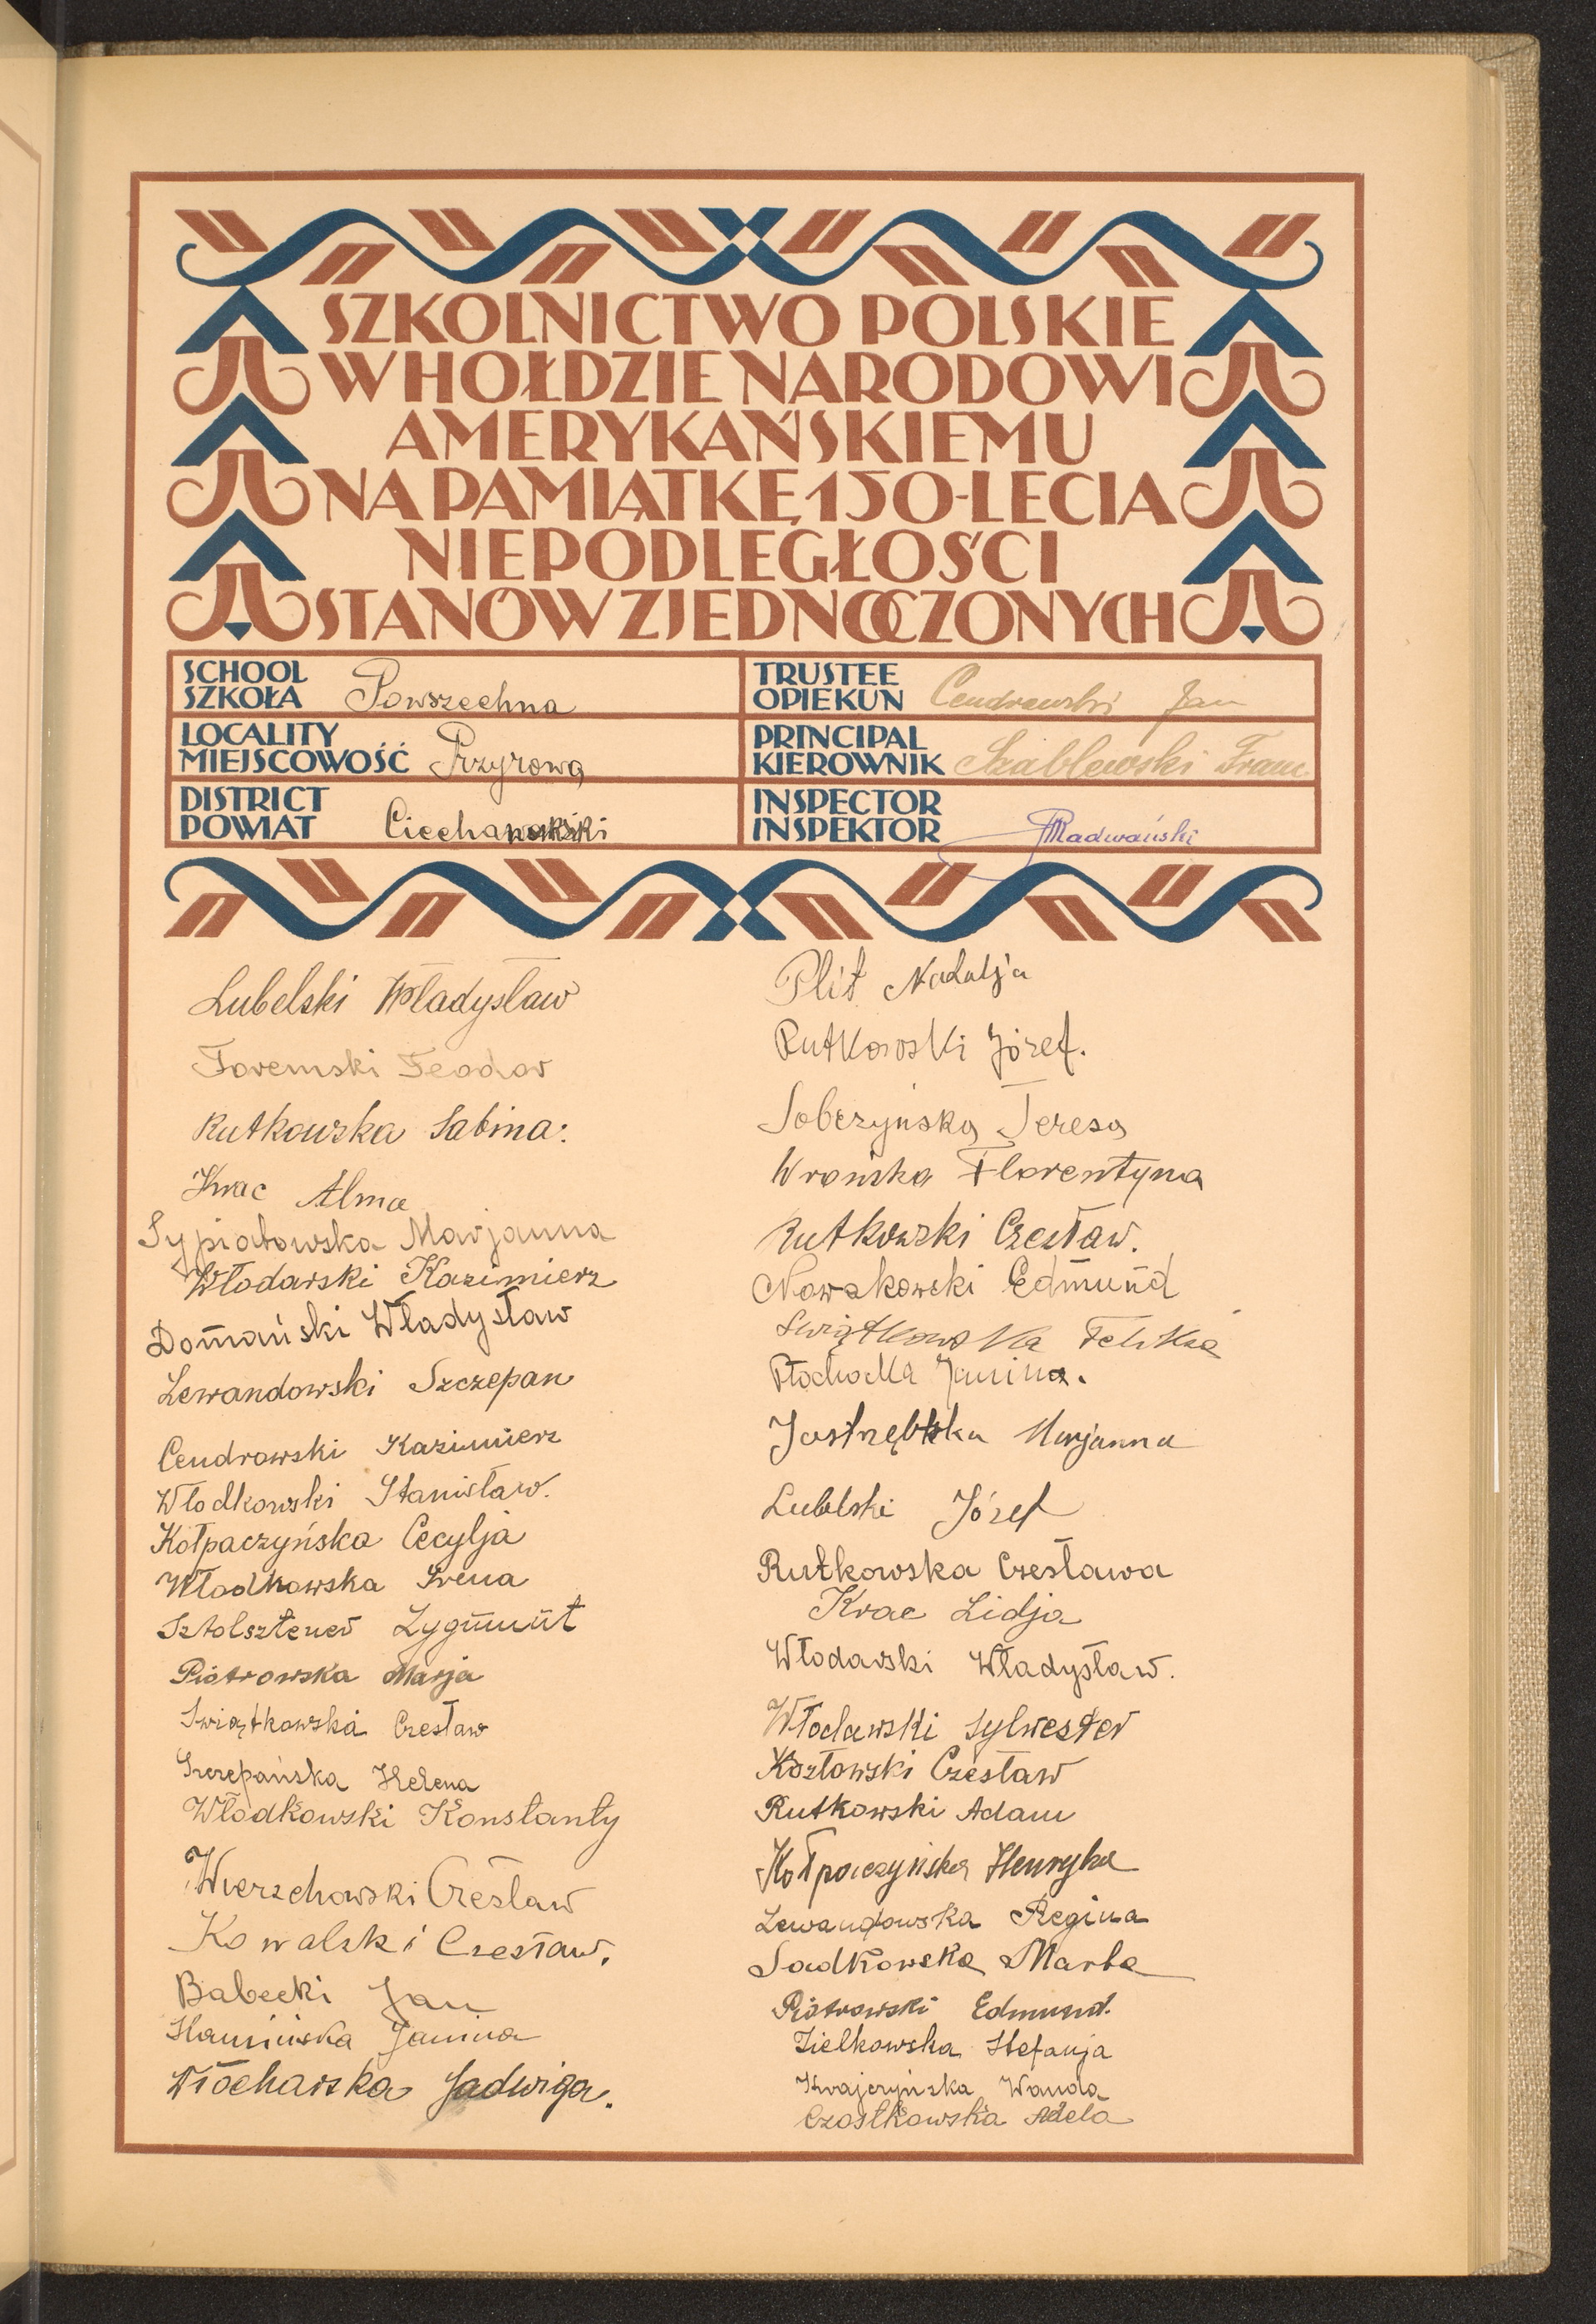 SZKOLNICTWO POLSKIE
W HOŁDZIE NARODOWI
AMERYKAŃSKIEMU
NA PAMIĄTKĘ 150-LECIA
NIEPODLEGŁOŚCI
STANÓW ZJEDNOCZONYCH
SCHOOL
SZKOŁA Powszechna
TRUSTEE
OPIEKUN Cendrowski Jan
LOCALITY
MIEJSCOWOŚĆ Przyrowa
PRINCIPAL
KIEROWNIK Szablewski Franc
DISTRICT
POWIAT Ciechanowski
INSPECTOR
INSPEKTOR Radwański
Lubelski Władysław
Foremski Teodor
Rutkowska Sabina.
Krac Alma
Sypiatowska Marjanna
Włodarski Kazimierz
Domański Władysław
Lewandowski Szczepan
Cendrowski Kazimierz
Włodkowski Stanisław.
Kołpaczyńska Cecylja
Włodkowska Irena
Sztolsztener Zygmunt
Piotrowska Marja
Swiątkowska Czesław
Szczepańska Helena
Włodkowski Konstanty
Wierzchowski Czesław
Kowalski Czesław.
Babecki Jan
Kamińska Janina
Włocharska Jadwiga.
Plit Natalja
Rutkowski Józef.
Sobczyńska Teresa
Wrońska Florentyna
Rutkowski Czesław.
Nowakowski Edmund
Swiątkowska Feliksa
Płochocka Janina.
Jastrzębska Marjanna
Lubelski Józef
Rutkowska Czesława
Krac Lidja
Włodarski Władysław.
Włodawski Sylwester
Kozłowski Czesław
Rutkowski Adam
Kołpaczyńska Henryka
Lewandowska Regina
Sadkowska Marta
Piotrowski Edmund.
Zielkowska Stefanja
Krajczyńska Wanda
Czostkowska Adela